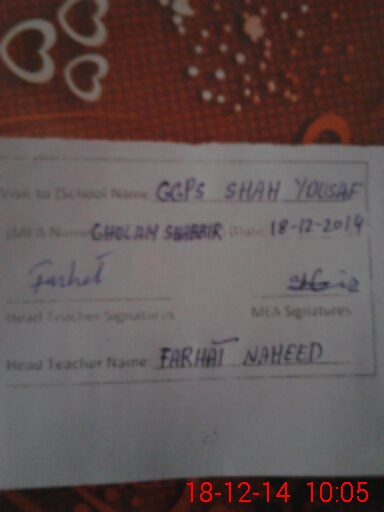 Visit to (School Name GGPS SHAH YOUSAF
(MEA Name GHULAM SHABBIR (Date 18-12-2014
Farhat
Head Teacher Signatures MEA Signatures
Head Teacher Name: FARHAT NAHEED
18-12-14 10:05